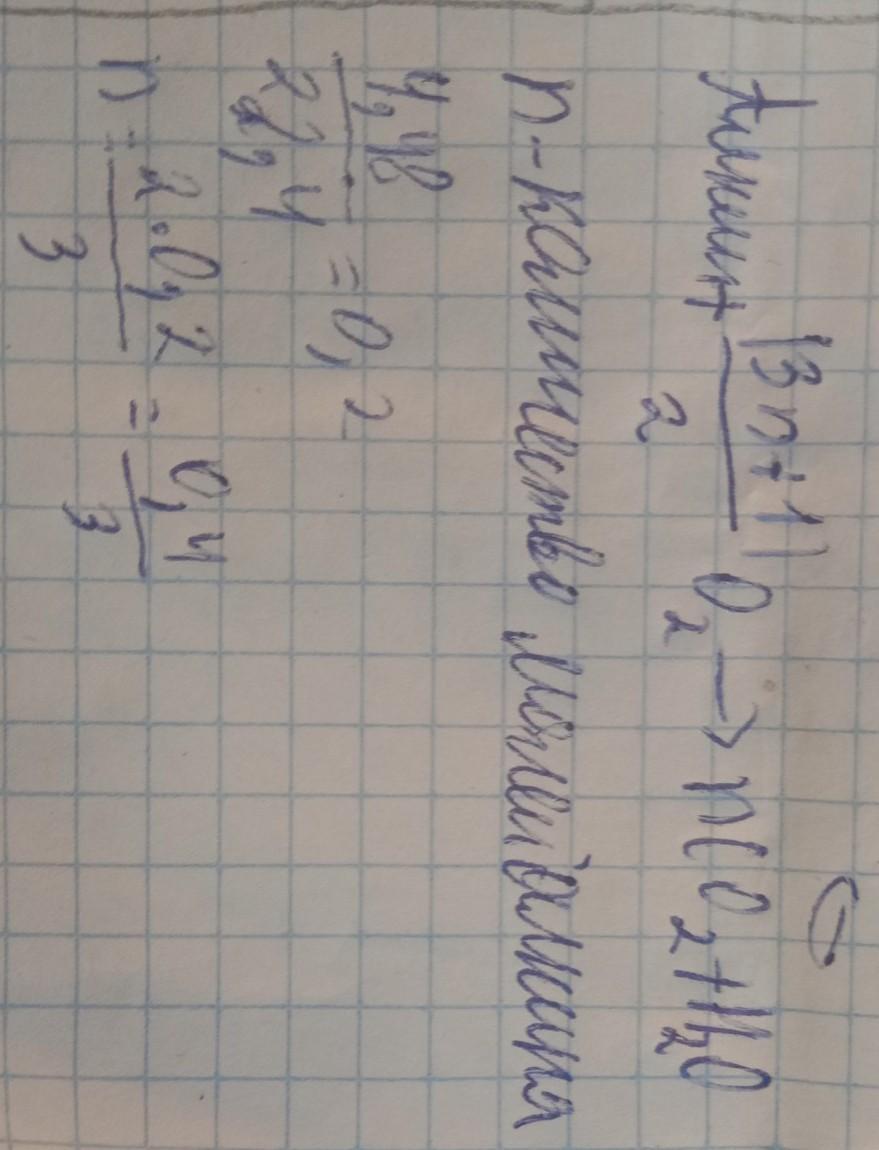 Алкин + (3n+1)/2 O₂ → nCO₂ + H₂O
n - количество молей алкина
4,48/22,4 = 0,2
n = 2·0,2/3 = 0,4/3